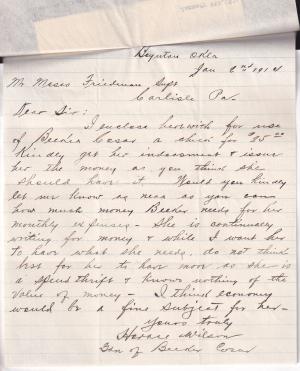 Boynton Okla
Jan 2nd 1914
Mr Moses Friedman Supt
Carlisle Pa.
Dear Sir:
I enclose herewith for use
of Beedea Cesar a check for 25 00
Kindly get her indorsement & issue
her the money as you think she
should have it. Would you kindly
let me know as near as you can
how much money Beedea needs for her
monthly expenses - She is continually
writing for money & while I want her
to have what she needs, do not think
best for her to have more as she is
a spendthrift & knows nothing of the
value of money - I think economy
would be a fine subject for her -
yours truly
Horace Wilson
Gdn of Beedea Cesar